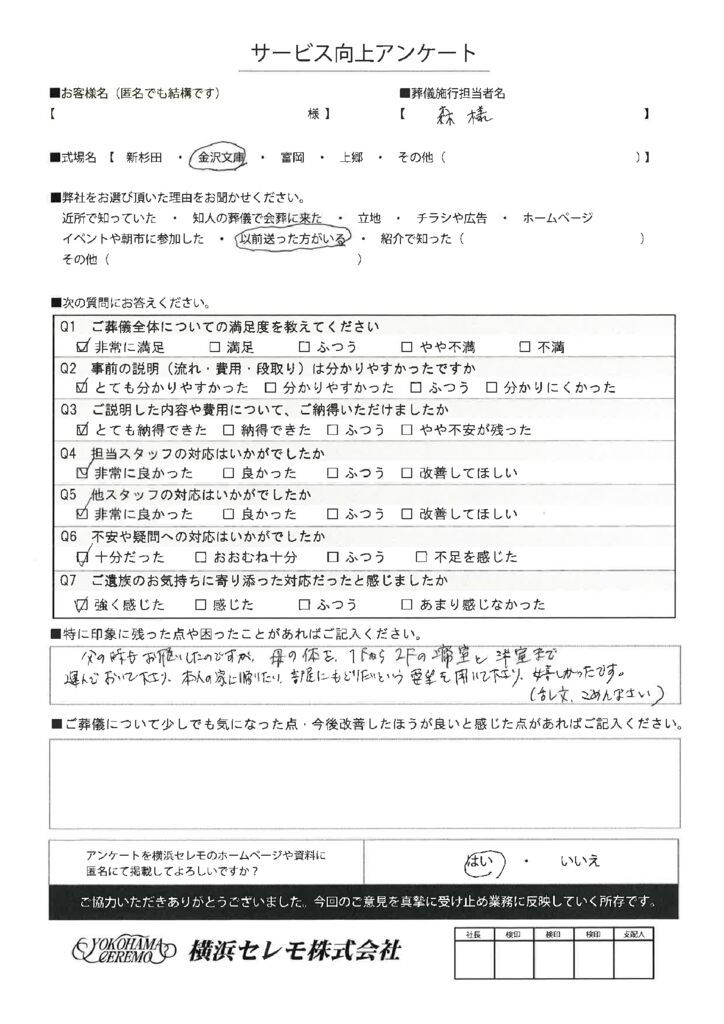 サービス向上アンケート
■お客様名（匿名でも結構です） ■葬儀施行担当者名
【 様 】 【 森 様 】
■式場名 【 新杉田 ・ 金沢文庫 ・ 富岡 ・ 上郷 ・ その他（ ）】
■弊社をお選び頂いた理由をお聞かせください。
近所で知っていた ・ 知人の葬儀で会葬に来た ・ 立地 ・ チラシや広告 ・ ホームページ
イベントや朝市に参加した ・ 以前送った方がいる ・ 紹介で知った（ ）
その他（ ）
■次の質問にお答えください。
Q1 ご葬儀全体についての満足度を教えてください
☑ 非常に満足 □ 満足 □ ふつう □ やや不満 □ 不満
Q2 事前の説明（流れ・費用・段取り）は分かりやすかったですか
☑ とても分かりやすかった □ 分かりやすかった □ ふつう □ 分かりにくかった
Q3 ご説明した内容や費用について、ご納得いただけましたか
☑ とても納得できた □ 納得できた □ ふつう □ やや不安が残った
Q4 担当スタッフの対応はいかがでしたか
☑ 非常に良かった □ 良かった □ ふつう □ 改善してほしい
Q5 他スタッフの対応はいかがでしたか
☑ 非常に良かった □ 良かった □ ふつう □ 改善してほしい
Q6 不安や疑問への対応はいかがでしたか
☑ 十分だった □ おおむね十分 □ ふつう □ 不足を感じた
Q7 ご遺族のお気持ちに寄り添った対応だったと感じましたか
☑ 強く感じた □ 感じた □ ふつう □ あまり感じなかった
■特に印象に残った点や困ったことがあればご記入ください。
父の時もお願いしたのですが、母の体を、1Fから2Fの寝室と洋室まで
運んでおいて下さり、本人の家に帰りたい、部屋にもどりたいという要望を聞いて下さり、嬉しかったです。
（乱文、ごめんなさい）
■ご葬儀について少しでも気になった点・今後改善したほうが良いと感じた点があればご記入ください。
アンケートを横浜セレモのホームページや資料に
匿名にて掲載してよろしいですか？ はい ・ いいえ
ご協力いただきありがとうございました。今回のご意見を真摯に受け止め業務に反映していく所存です。
YOKOHAMA
CEREMO
横浜セレモ株式会社
社長 検印 検印 検印 支配人